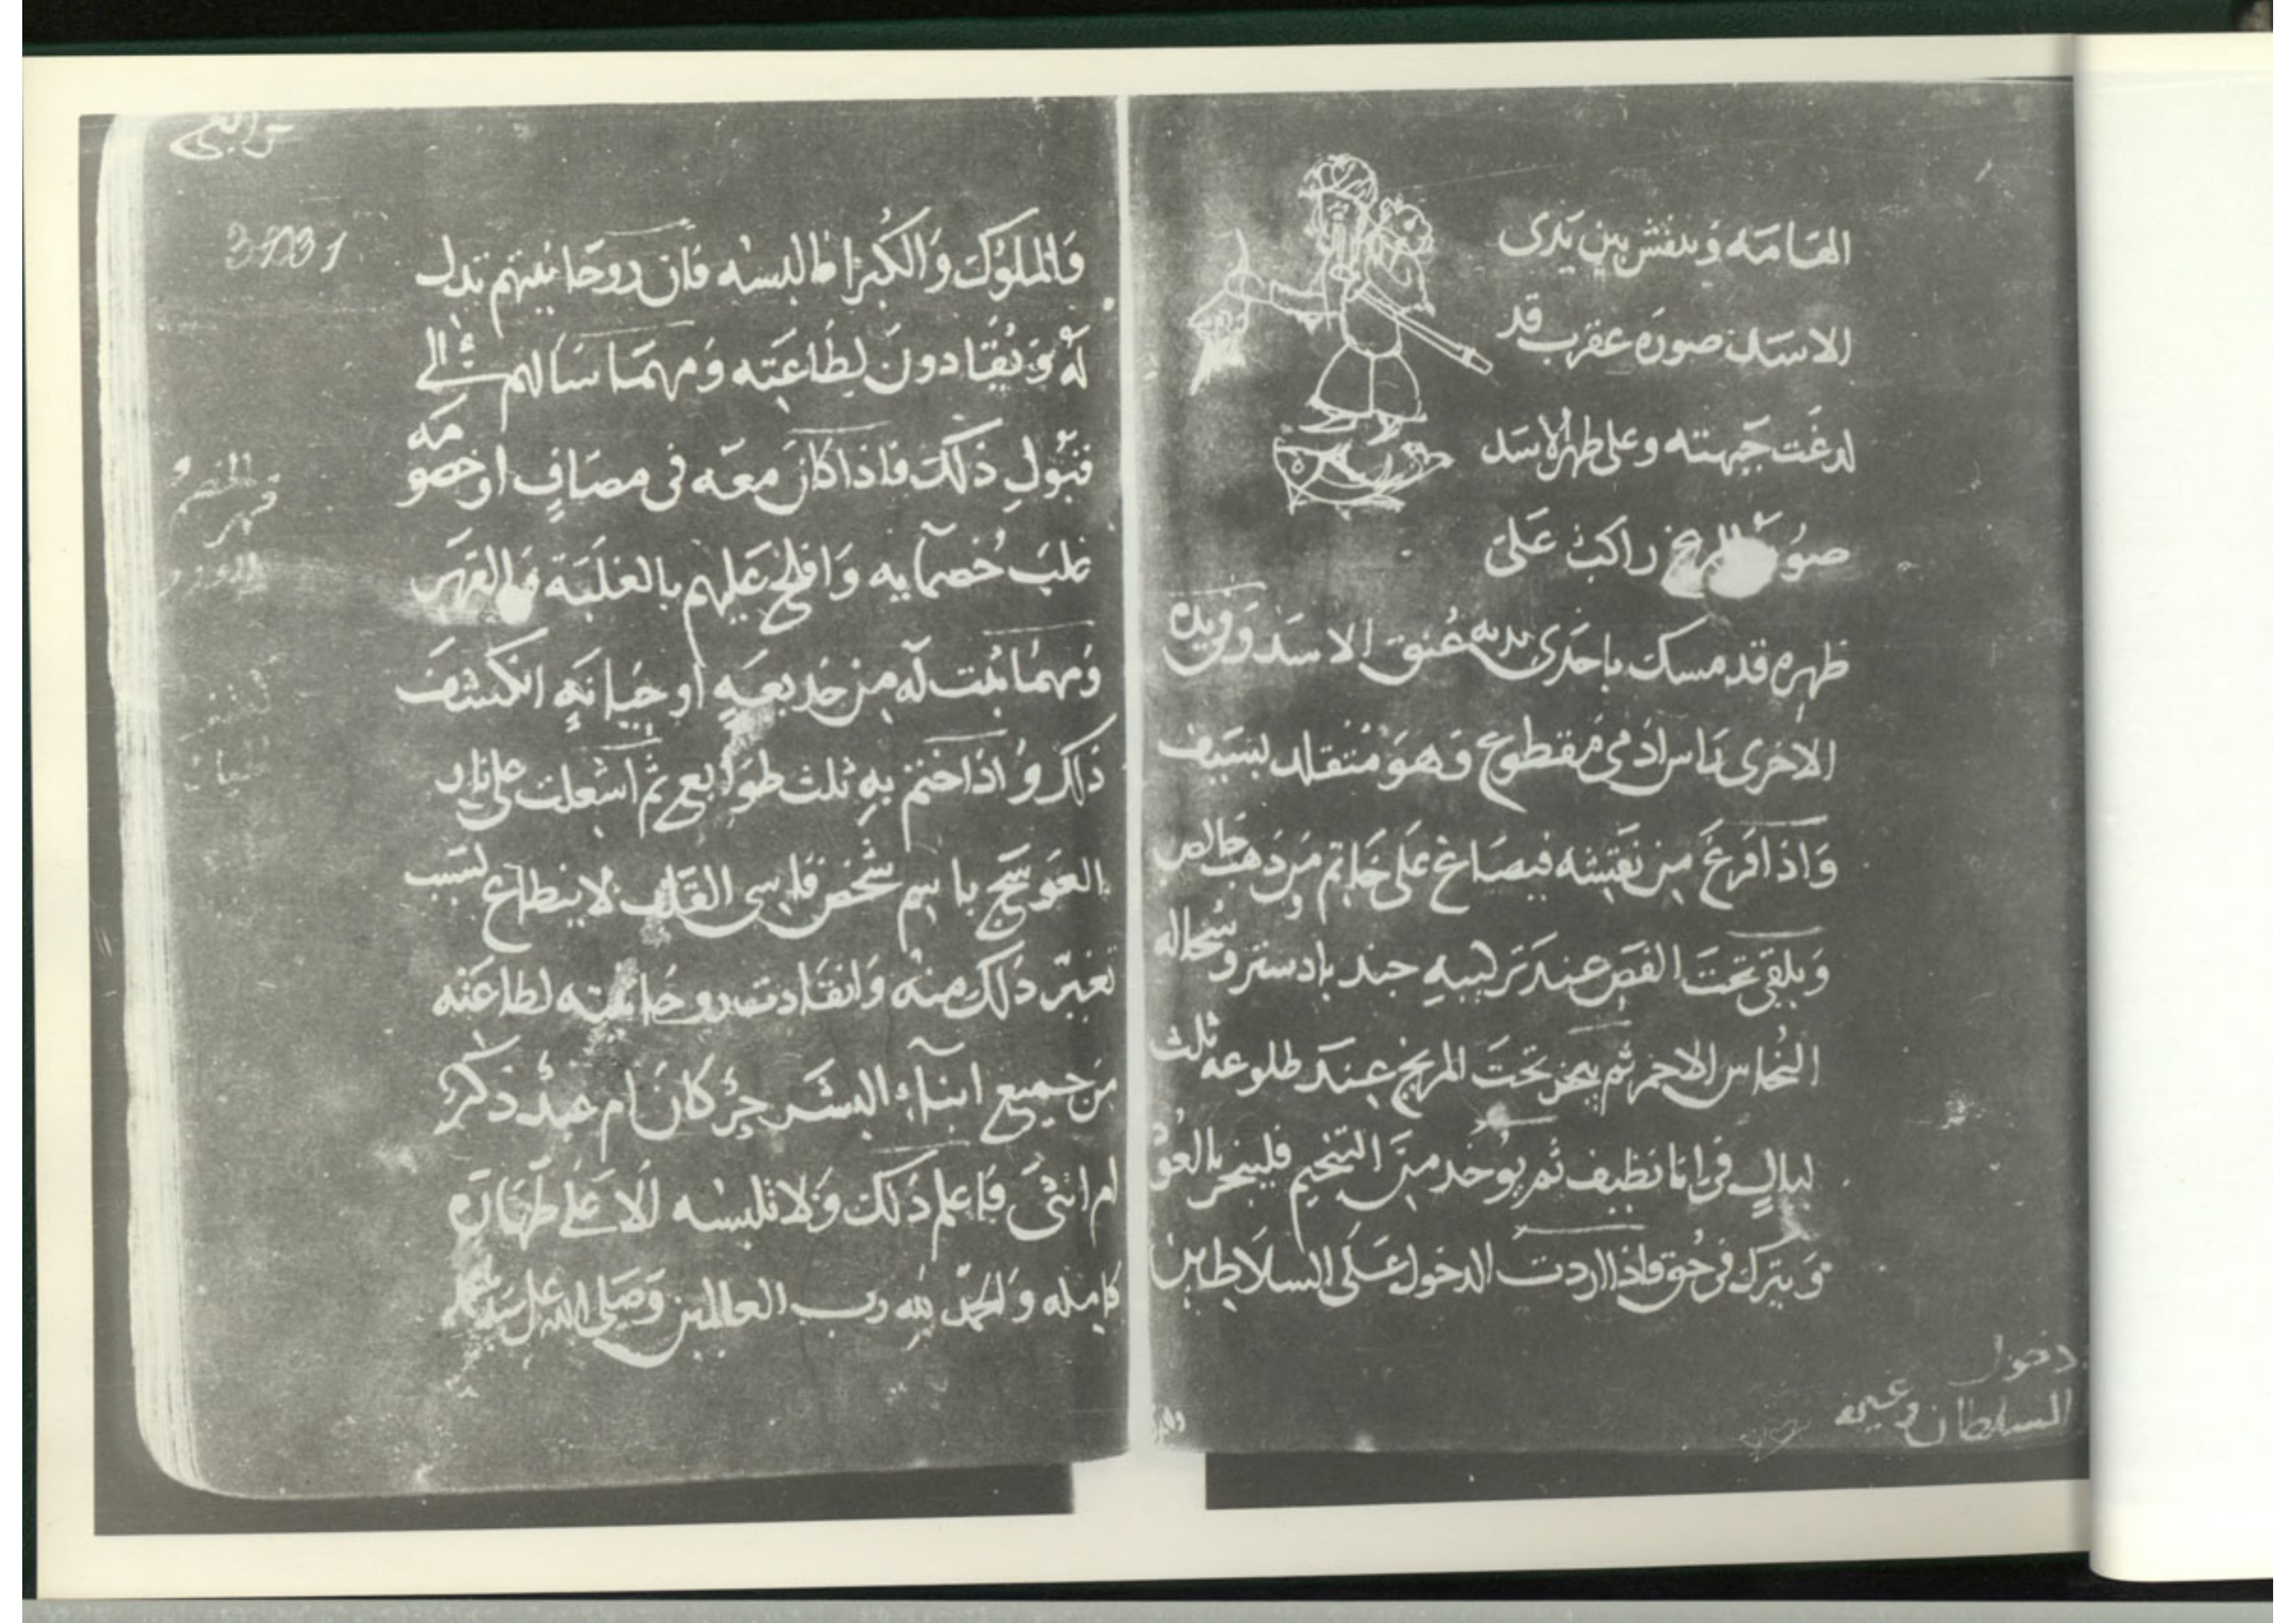 الهامه وينقش بين يدى
الاسد صورة عقرب قد
لدغت جبهته وعلى ظهر الاسد
راكب على
ظهره قد مسك باحدى يديه عنق الاسد وفى يده
الاخرى راس ادمى مقطوع وهو متقلد بسيف
واذا افرغ من نقشه فيصاغ على خاتم من ذهب خالص
ويلقى تحت الفص عند تركيبه جند بادستر وسحاله
النحاس الاحمر ثم يبخر تحت المريخ عند طلوعه ثلث
ليال فى انا نظيف ثم يوخد من التنجيم فليبخر بالعود
ويترك فى حق فاذا اردت الدخول على السلاطين
دخول
السلطان وغيره
والملوك والكبرا فالبسه فان روحانيتهم تدل
له وينقادون لطاعته ومهما سالهم شى الى
قبول ذلك فاذا كان معه فى مصاف او خصومه
غلب خصمايه وافلح عليهم بالغلبة والقهر
ومهما بيت له من خديعه او خيانه انكشف
ذلك واذا ختم به ثلث طوابع ثم اشعلت على نار
العوسج باسم شخص قاسى القلب لا ينطاع لسبب
تغير ذلك منه وانقادت روحانيته لطاعته
من جميع ابناء البشر حر كان ام عبد ذكر
ام انثى فاعلم ذلك ولا تلبسه الا على طهارة
كامله والحمد لله رب العالمين وصلى الله على سيدنا محمد